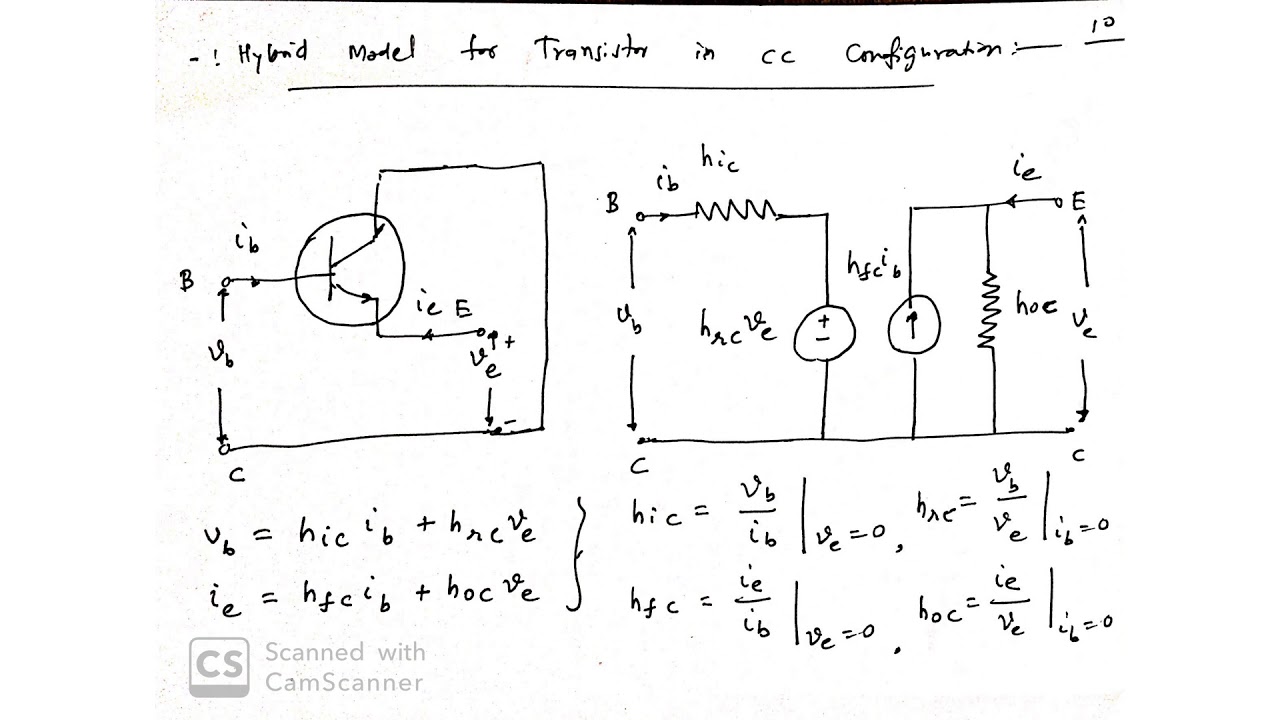 -: Hybrid Model for Transistor in CC Configuration:— 10
B
ib
ie E
vb
ve
+
-
C
B
ib
hic
ie
E
vb
hrc ve
+
-
hfc ib
hoc
ve
C
C
vb = hic ib + hrc ve
ie = hfc ib + hoc ve
hic = vb/ib | ve=0 , hrc = vb/ve | ib=0
hfc = ie/ib | ve=0 , hoc = ie/ve | ib=0
CS
Scanned with
CamScanner